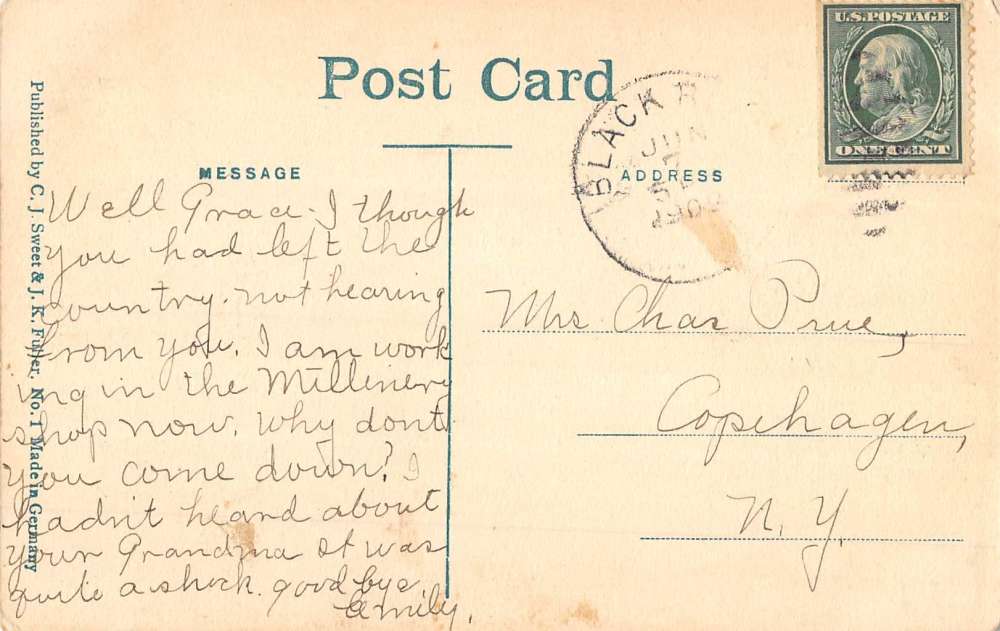 Post Card
U.S. POSTAGE
ONE CENT
BLACK R
JUN
7
190
MESSAGE
ADDRESS
Published by C. J. Sweet & J. K. Fuller. No. 1 Made in Germany
Well Grace I though
you had left the
country. not hearing
from you. I am work
ing in the Millinery
shop now. Why dont
you come down? I
hadn't heard about
your Grandma it was
quite a shock. good bye.
Emily.
Mrs Chas Prue,
Copehagen,
N. Y.